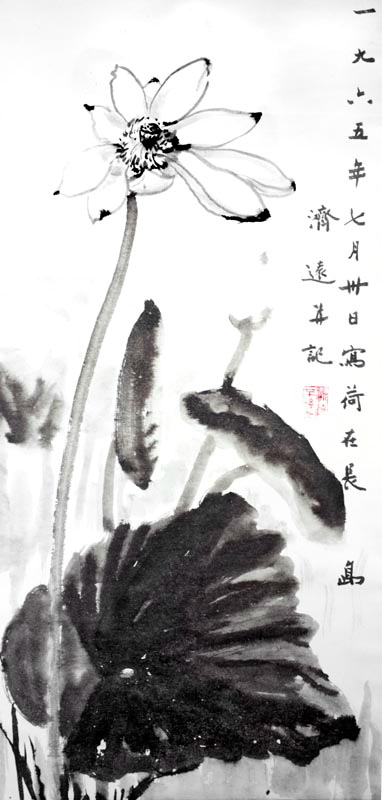 一九六五年七月卅日寫荷在長島
濟遠并記